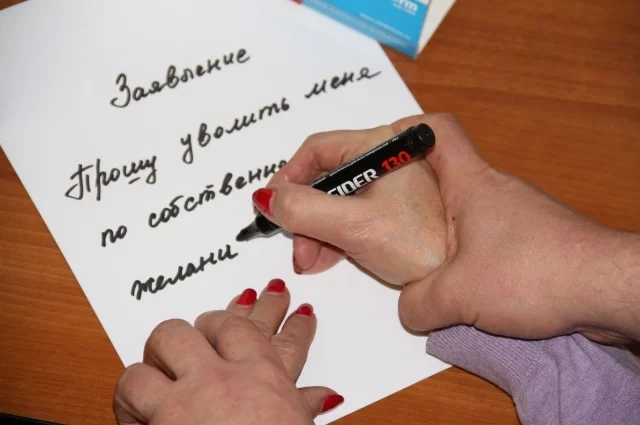 Заявление
Прошу уволить меня
по собственно
желани
EIDER 130